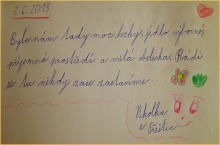 2.6.2013
Bylo nám tady moc hezky, jídlo výborné,
příjemné prostředí a milá obsluha. Rádi
se tu někdy zase zastavíme.
Nikolka
z